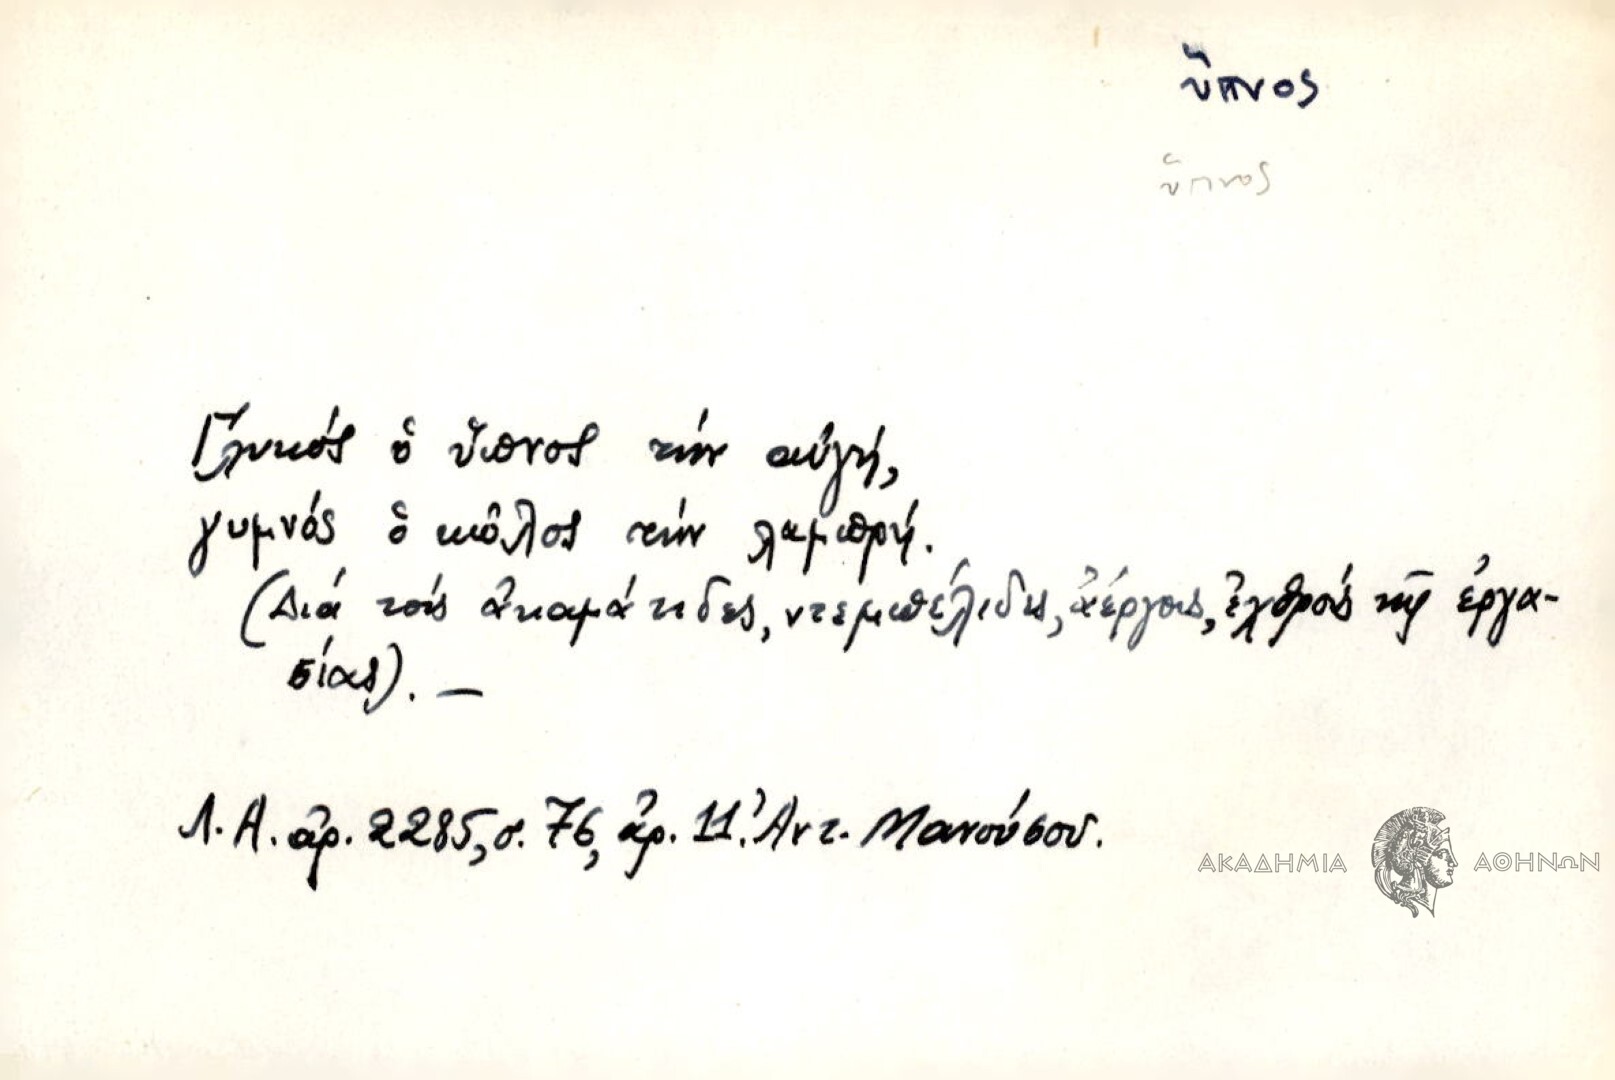 ὕπνος
ὕπνος
Γλυκός ὁ ὕπνος τήν αὐγή,
γυμνός ὁ κῶλος τήν λαμπρή.
(Διά τούς ἀκαμάτιδες, ντεμπέλιδες, ἀέργους, ἐχθρούς τῆς ἐργα-
σίας). —
Λ. Α. ἀρ. 2285, σ. 76, ἀρ. 11. Ἀντ. Μανούσου.
ΑΚΑΔΗΜΙΑ ΑΘΗΝΩΝ